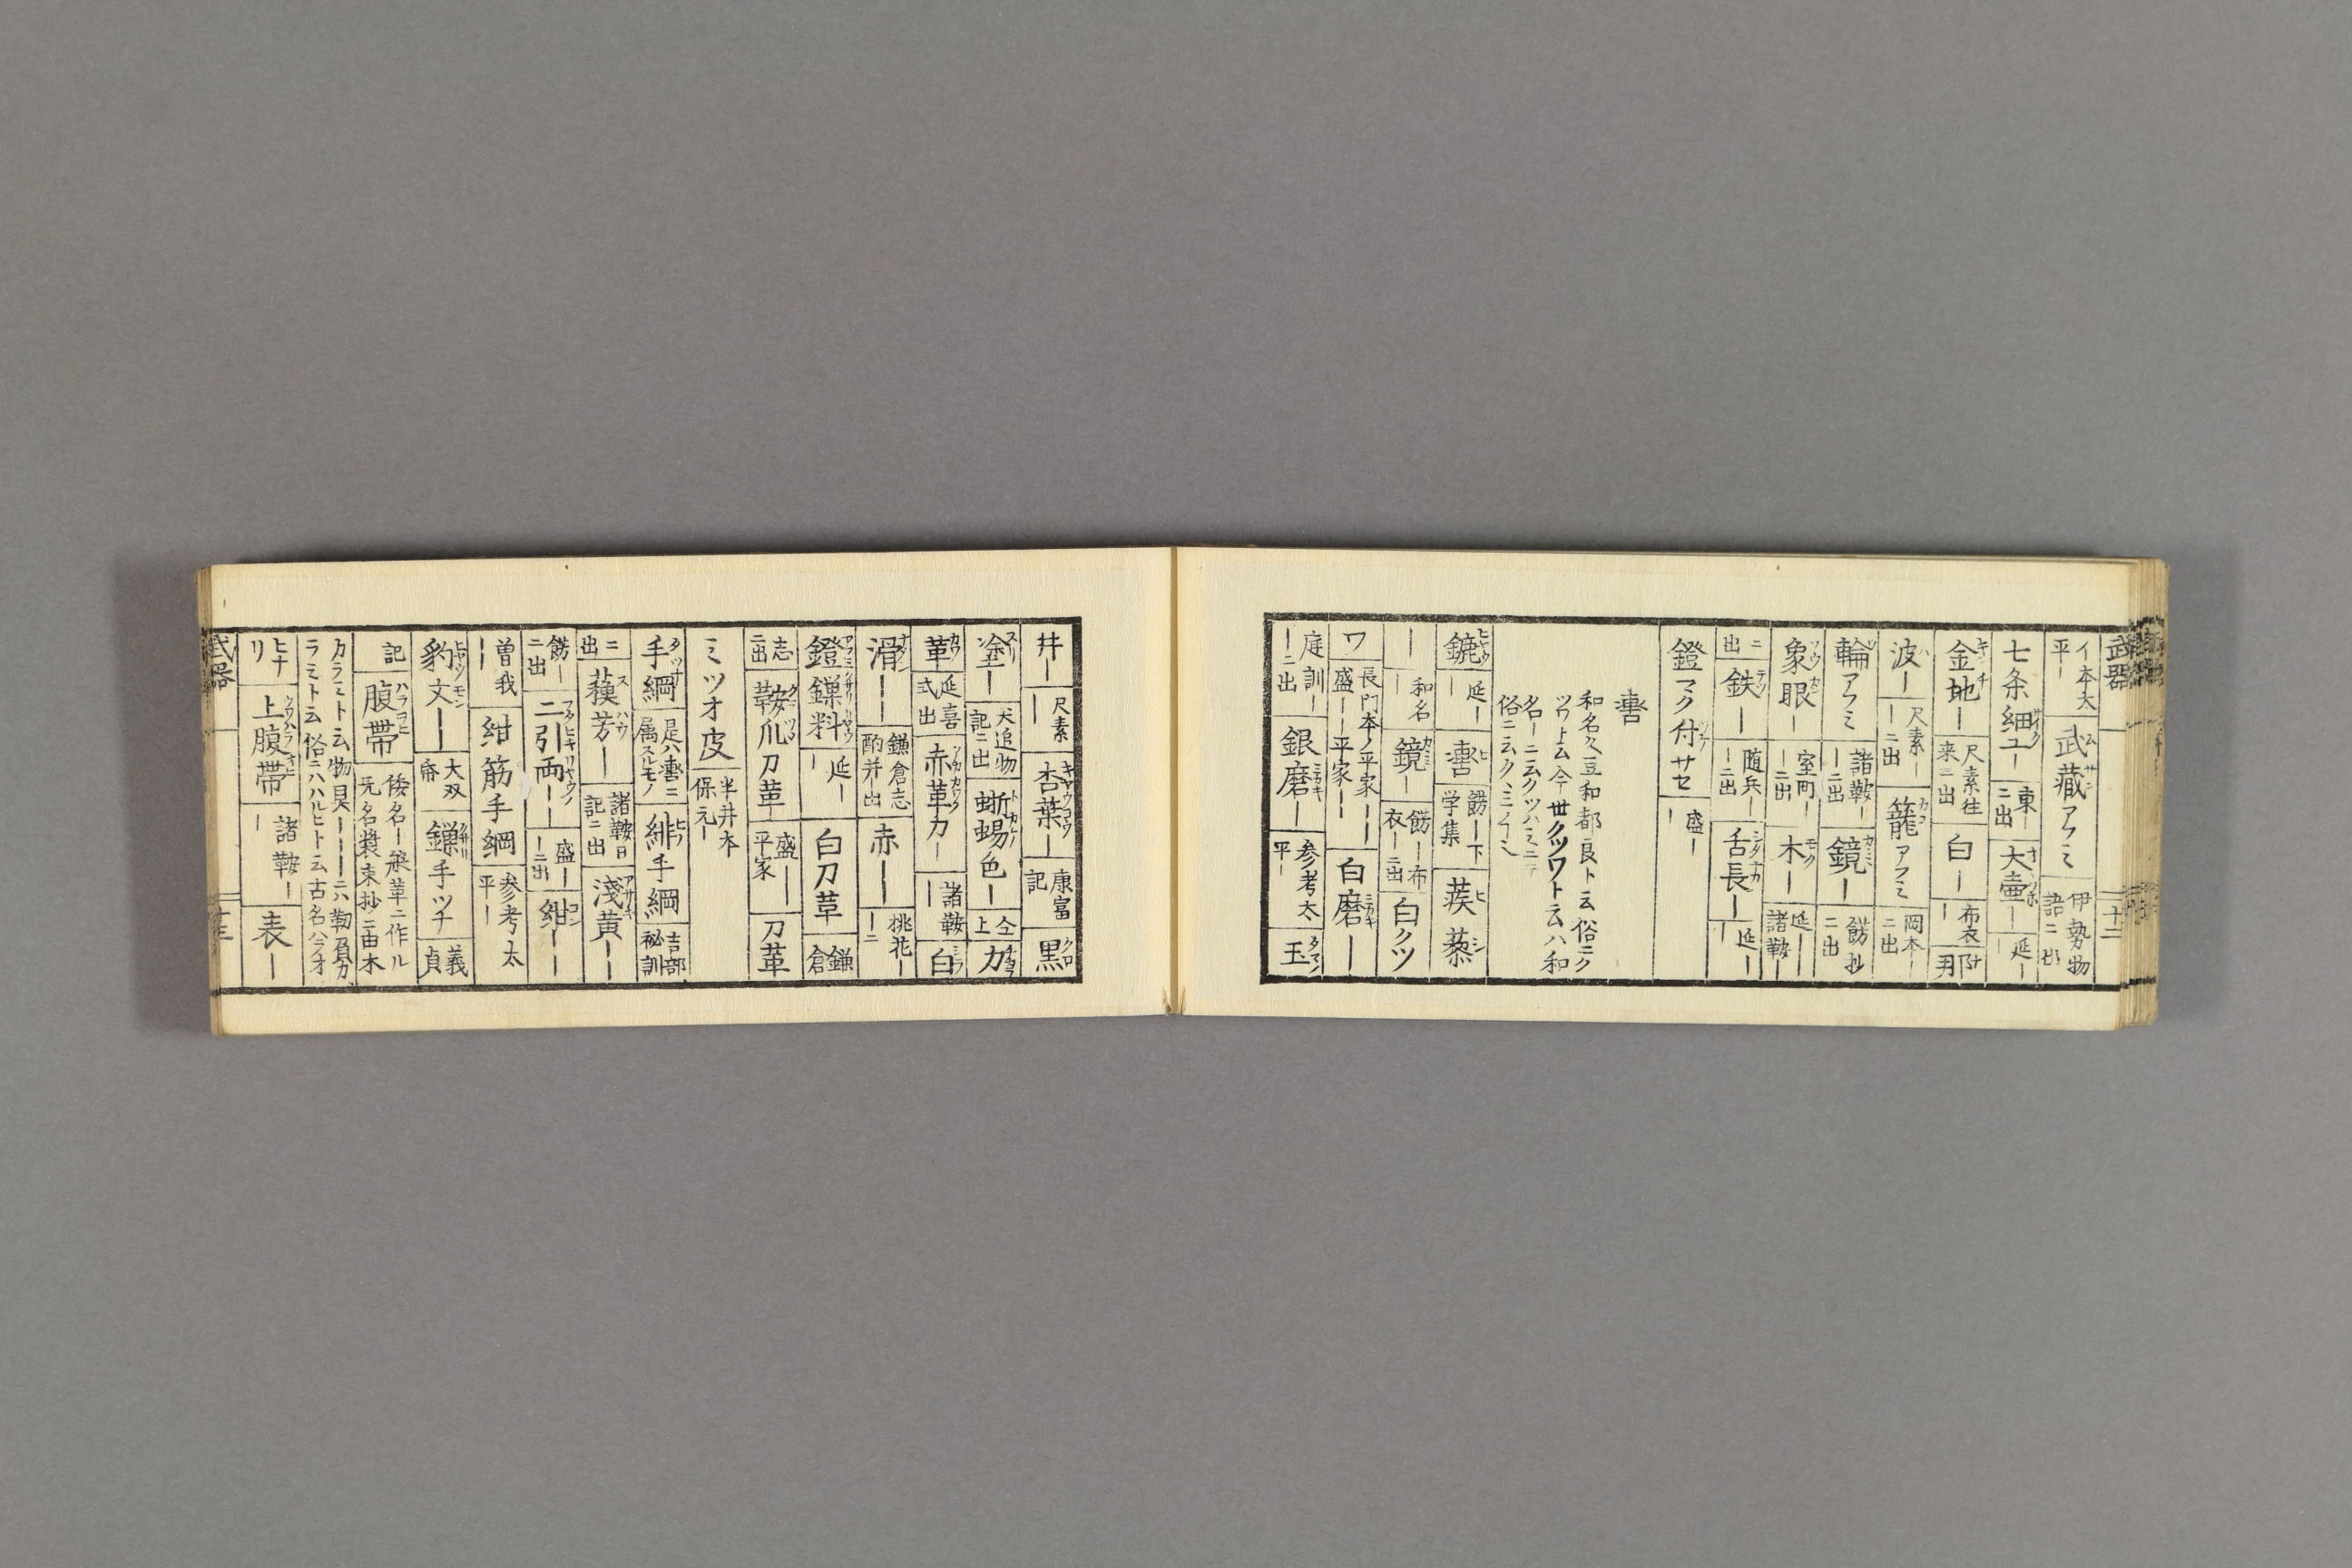 武器
イ本太平ー 武藏アフミ 伊勢物語ニ出
七条細エー 東ーニ出 大壷ー 延ー
金地ー 尺素往来ニ出 白ー 布衣ー
波ー 尺素ーニ出 籠アフミ 岡本ーニ出
輪アフミ 諸鞍ーニ出 鏡ー 餝抄ニ出
象眼ー 室町ーニ出 木ー 延ー諸鞍ー
ニ出 鉄ー 随兵ーニ出 舌長ー 延ー
鐙マク付サセ 盛ー
轡
和名久豆和都良ト云俗ニク
ツワト云今世クツワト云ハ和
名ーニ云クツハミニテ
俗ニ云ク
鑣 延ー 轡 餝ー下学集 蒺䔧
ー 和名ー 鏡ー 餝ー布衣ーニ出 白クツ
ワ 長門本ノ平家ー盛ー平家ー 白磨ー
庭訓ーニ出 銀磨ー 参考太平ー 玉
井ー 尺素ー 杏葉ー 康富記 黒
塗ー 犬追物記ニ出 蜥蜴色ー 仝上 力
革 延喜式出 赤革力ー 諸鞍ー 白
滑ー 鎌倉志酌并出 赤ー 桃花ーニ
鐙鏁料 延ー 白刀革 鎌倉
志ニ出 鞍爪刀革 盛ー平家ー 刀革
ミツオ皮 半井本保元ー
手綱 是ハ轡ニ属スルモノ 緋手綱 吉部秘訓
ニ出 蘓芳ー 諸鞍日記ニ出 淺黄ー
餝ーニ出 二引両ー 盛ーニ出 紺ー
曽我ー 紺筋手綱 参考太平ー
豹文ー 大双帋 鏁手ツナ 義貞
記 腹帯 倭名ー 革ニ作ル 无名裝束抄ニ由木
カラミト云物具ーーーニハ 力
ラミト云俗ニハハルヒト云古名ハラオ
ヒナリ 上腹帯 諸鞍ー 表ー
武器